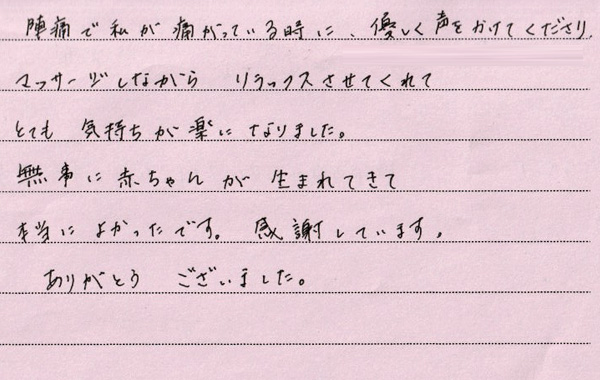 陣痛で私が痛がっている時に、優しく声をかけてくださり、
マッサージしながら リラックスさせてくれて
とても 気持ちが楽になりました。
無事に赤ちゃんが 生まれてきて
本当によかったです。感謝しています。
ありがとう ございました。